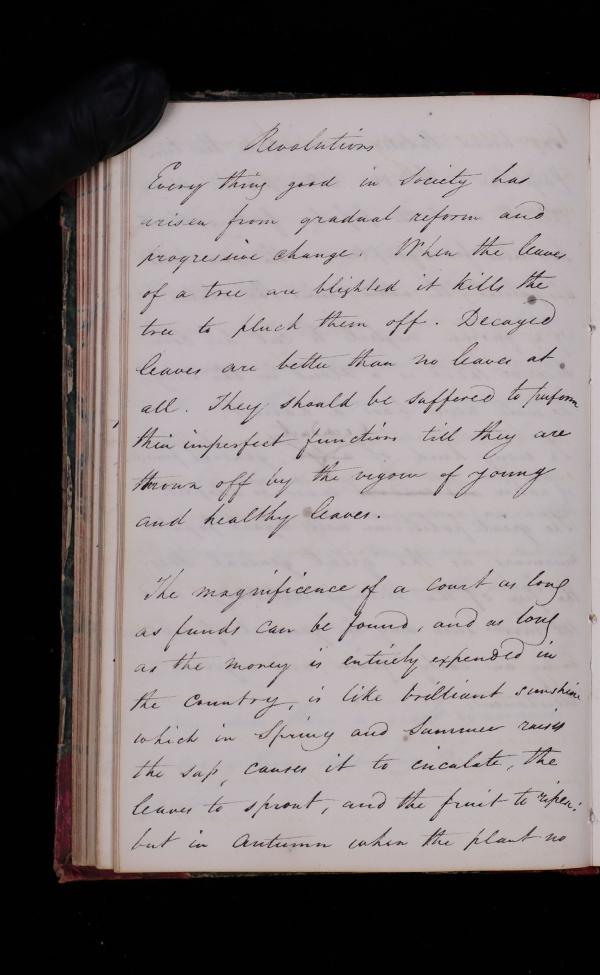 Revolutions
Every thing good in Society has
arisen from gradual reform and
progressive change. When the leaves
of a tree are blighted it kills the
tree to pluck them off. Decayed
leaves are better than no leaves at
all. They should be suffered to perform
their imperfect functions till they are
thrown off by the vigour of young
and healthy leaves.
The magnificence of a court as long
as funds can be found, and as long
as the money is entirely expended in
the country, is like brilliant sunshine
which in Spring and Summer raises
the sap, causes it to circulate, the
leaves to sprout, and the fruit to ripen:
but in Autumn when the plant no